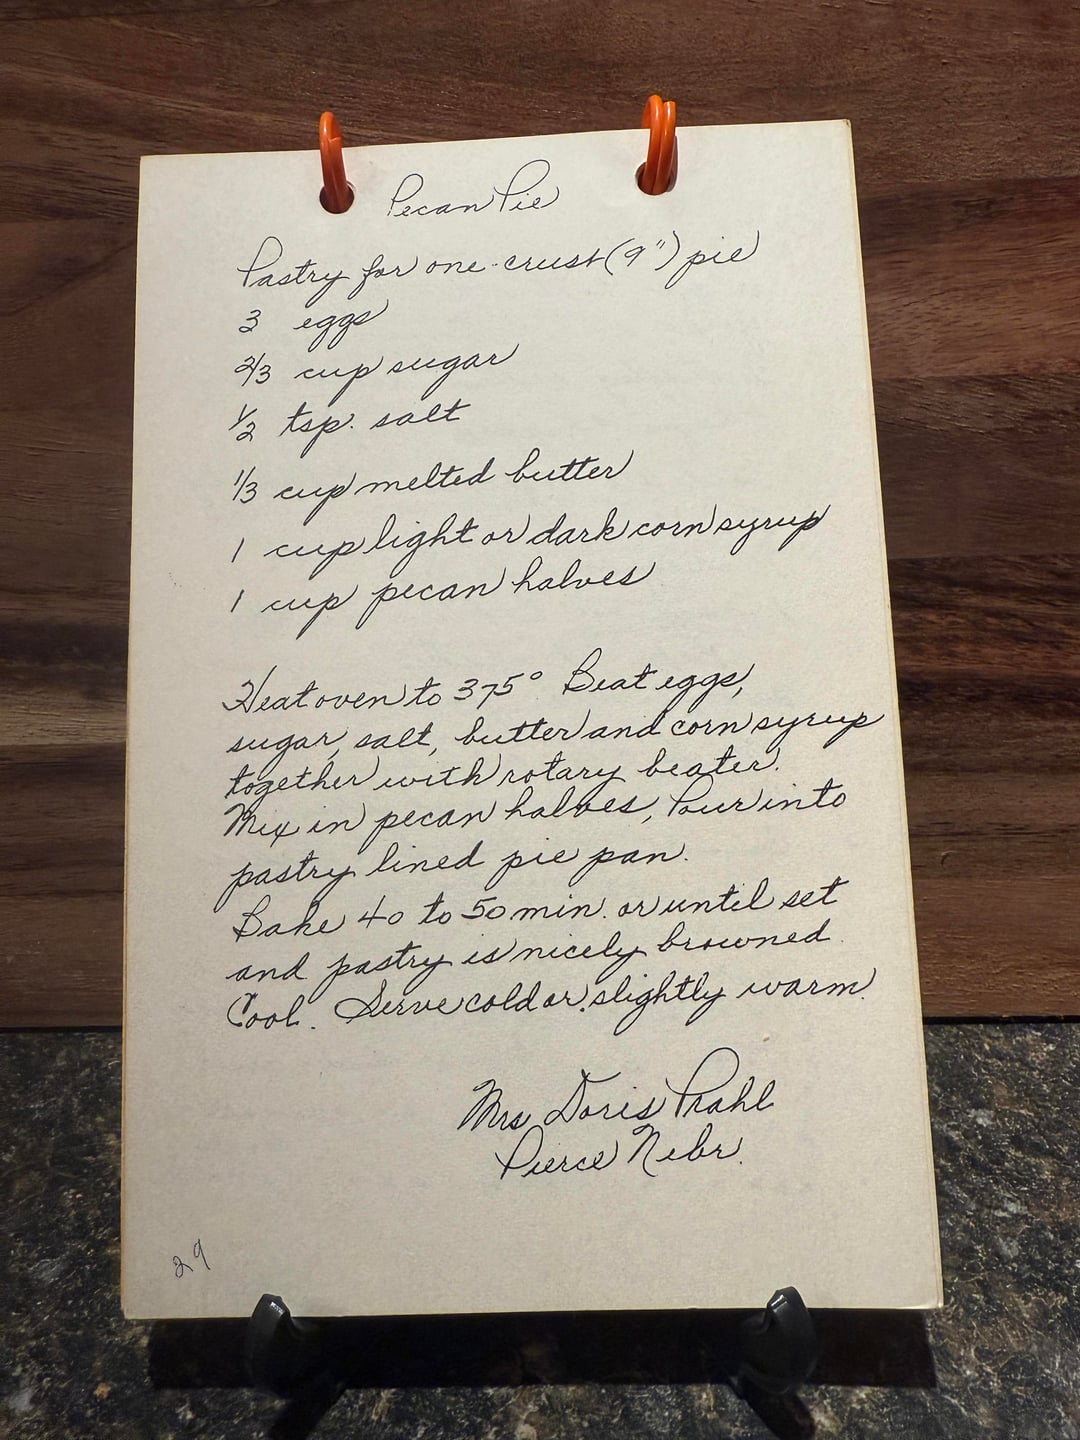 Pecan Pie
Pastry for one-crust (9") pie
3 eggs
2/3 cup sugar
1/2 tsp. salt
1/3 cup melted butter
1 cup light or dark corn syrup
1 cup pecan halves
Heat oven to 375° Beat eggs,
sugar, salt, butter and corn syrup
together with rotary beater.
Mix in pecan halves, Pour into
pastry lined pie pan.
Bake 40 to 50 min. or until set
and pastry is nicely browned.
Cool. Serve cold or slightly warm.
Mrs Doris Prahl
Pierce Nebr.
29